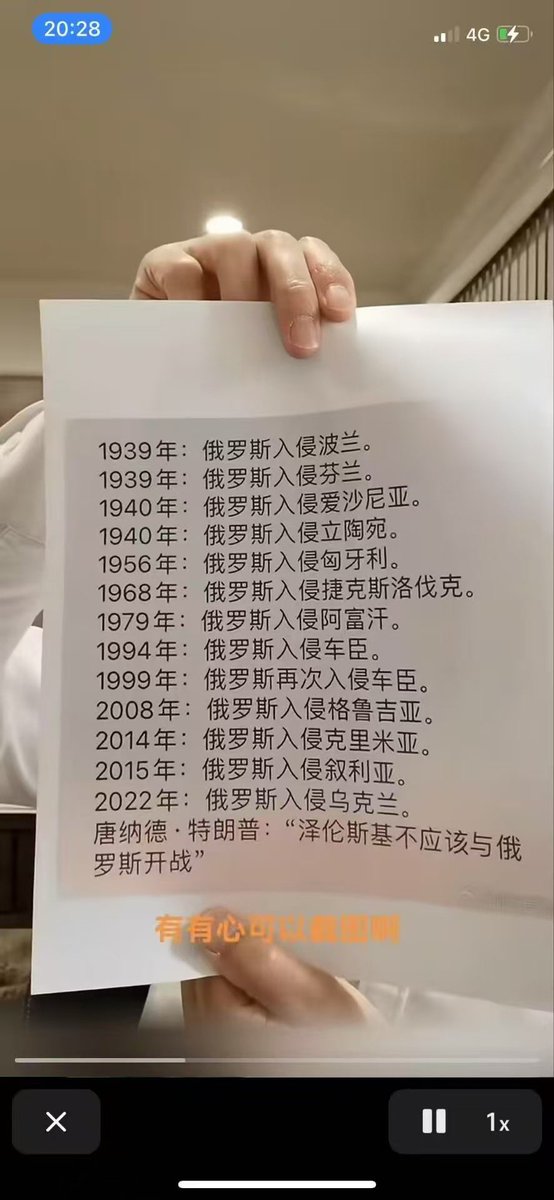 20:28
4G
1939年：俄罗斯入侵波兰。
1939年：俄罗斯入侵芬兰。
1940年：俄罗斯入侵爱沙尼亚。
1940年：俄罗斯入侵立陶宛。
1956年：俄罗斯入侵匈牙利。
1968年：俄罗斯入侵捷克斯洛伐克。
1979年：俄罗斯入侵阿富汗。
1994年：俄罗斯入侵车臣。
1999年：俄罗斯再次入侵车臣。
2008年：俄罗斯入侵格鲁吉亚。
2014年：俄罗斯入侵克里米亚。
2015年：俄罗斯入侵叙利亚。
2022年：俄罗斯入侵乌克兰。
唐纳德·特朗普：“泽伦斯基不应该与俄
罗斯开战”
有有心可以截图啊
1x